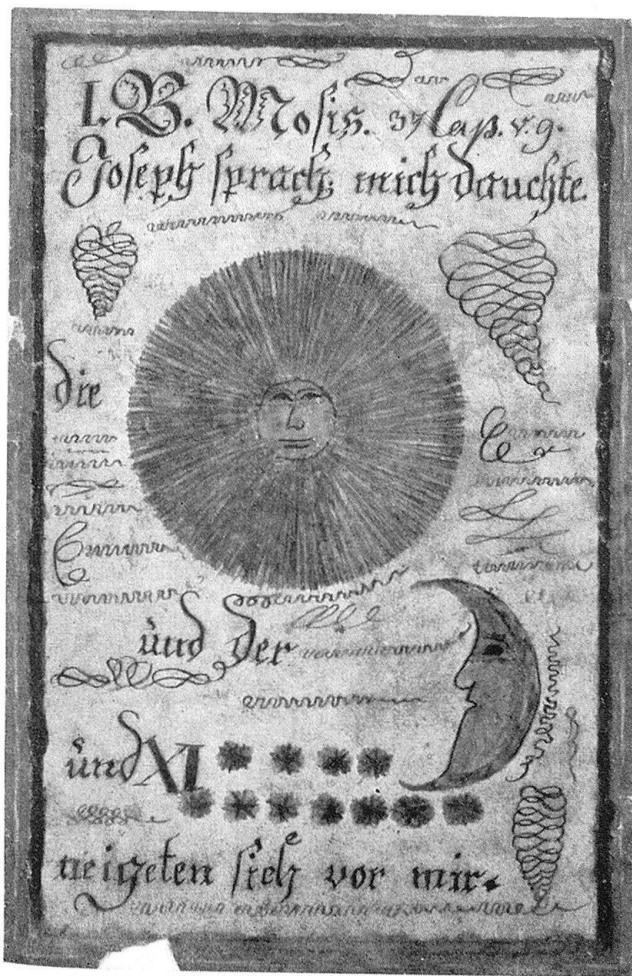 I. B. Mosis. 37 Cap. v. 9.
Joseph sprach, mich dauchte
die
und der
und XI
neigeten sich vor mir.